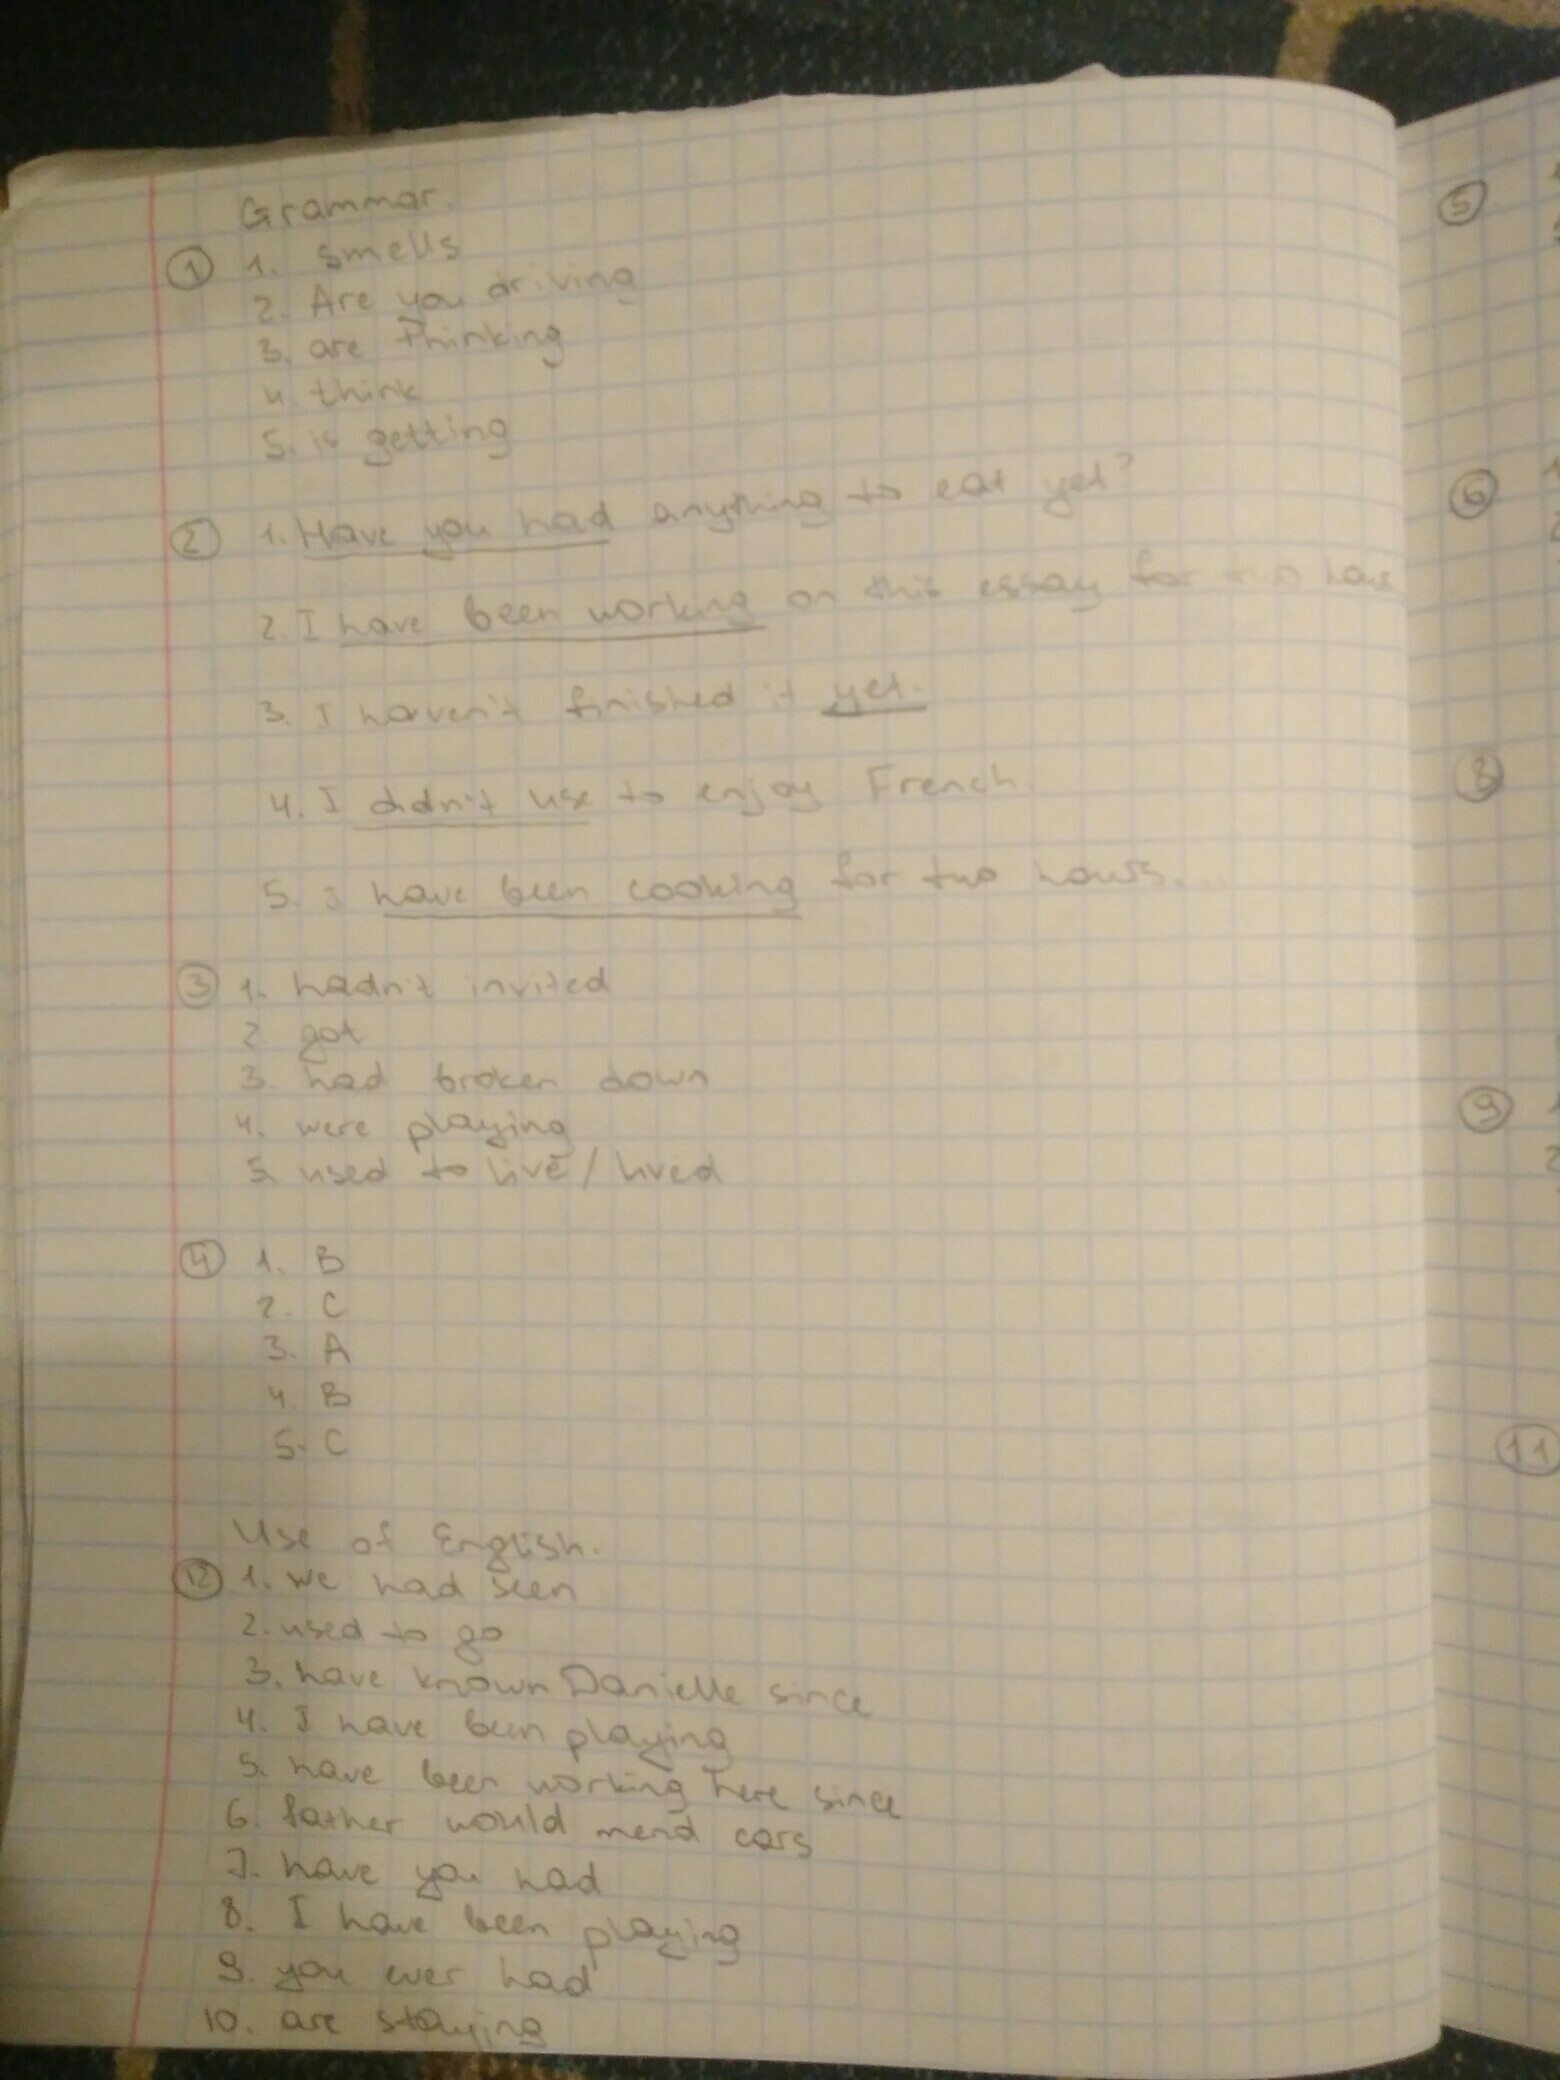 Grammar.
① 1. smells
2. Are you driving
3. are thinking
4. think
5. is getting
② 1. Have you had anything to eat yet?
2. I have been working on this essay for two
3. I haven't finished it yet.
4. I didn't use to enjoy French.
5. I have been cooking for two hours.
③ 1. hadn't invited
2. got
3. had broken down
4. were playing
5. used to live / lived
④ 1. B
2. C
3. A
4. B
5. C
Use of English.
⑫ 1. we had seen
2. used to go
3. have known Danielle since
4. I have been playing
5. have been working here since
6. father would mend cars
7. have you had
8. I have been playing
9. you ever had
10. are staying
⑤
⑥
⑧
⑨ 1
2
⑪